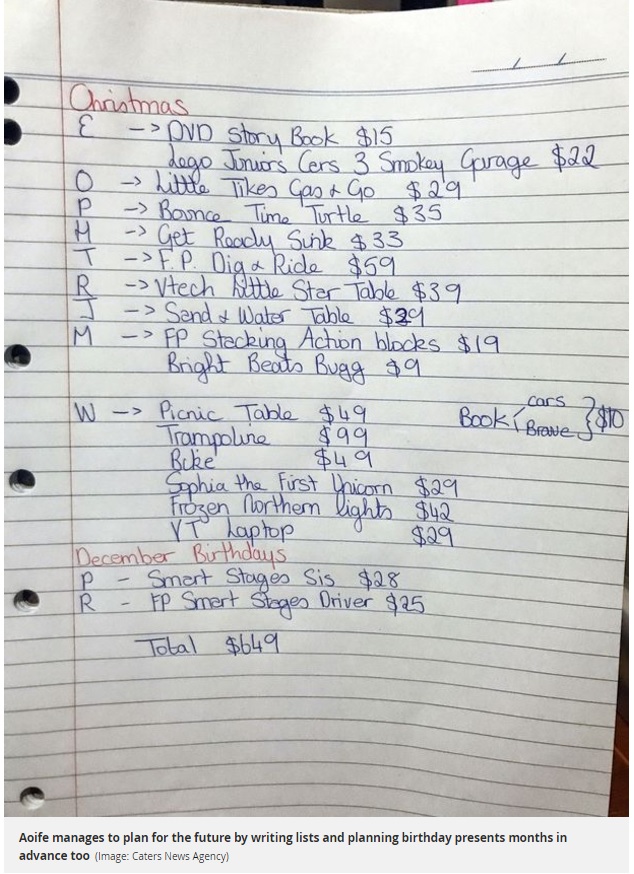 Christmas
E -> DVD Story Book $15
Lego Juniors Cars 3 Smokey Garage $22
O -> Little Tikes Gas & Go $29
P -> Bounce Time Turtle $35
M -> Get Ready Sink $33
T -> F.P. Dig & Ride $59
R -> Vtech Little Star Table $39
J -> Sand & Water Table $39
M -> FP Stacking Action blocks $19
Bright Beats Bugg $9
W -> Picnic Table $49
Trampoline $99
Bike $49
Sophia the First Unicorn $29
Frozen Northern lights $42
VT Laptop $29
Book { cars
Brave } $10
December Birthdays
P - Smart Stages Sis $28
R - FP Smart Stages Driver $25
Total $649
Aoife manages to plan for the future by writing lists and planning birthday presents months in
advance too (Image: Caters News Agency)